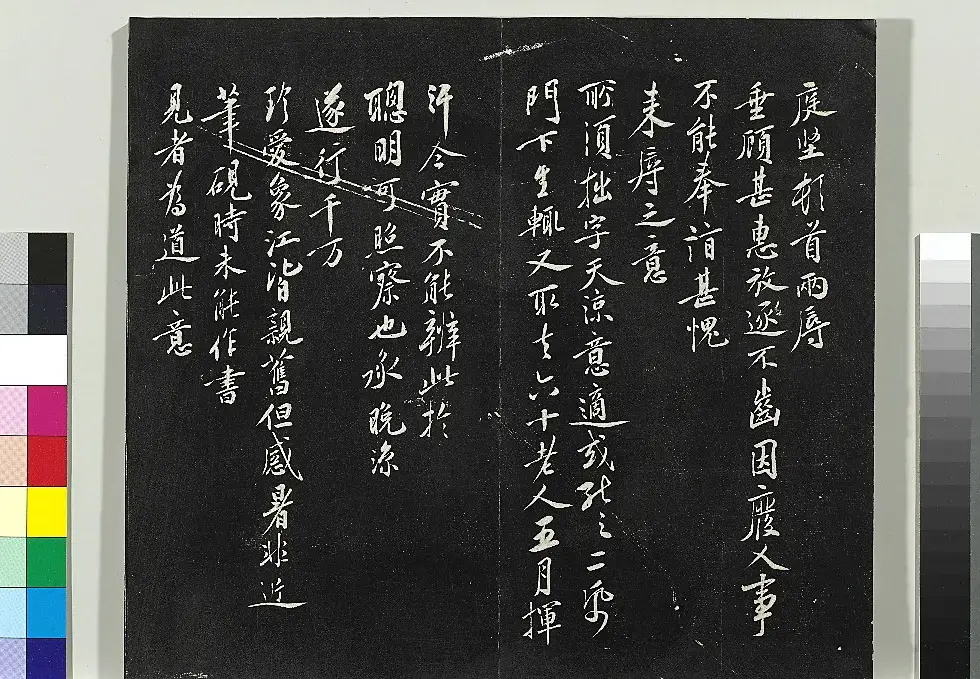 庭堅頓首兩辱
垂顧甚惠放逐不齒因廢人事
不能奉詣甚愧
来辱之意
所須拙字天涼意適或能三二紙
門下生輒又取去六十老人五月揮
汗今實不能辦此於
聰明可照察也承晚涼
遂行千万
珍愛象江皆親舊但盛暑非近
筆硯時未能作書
見者為道此意